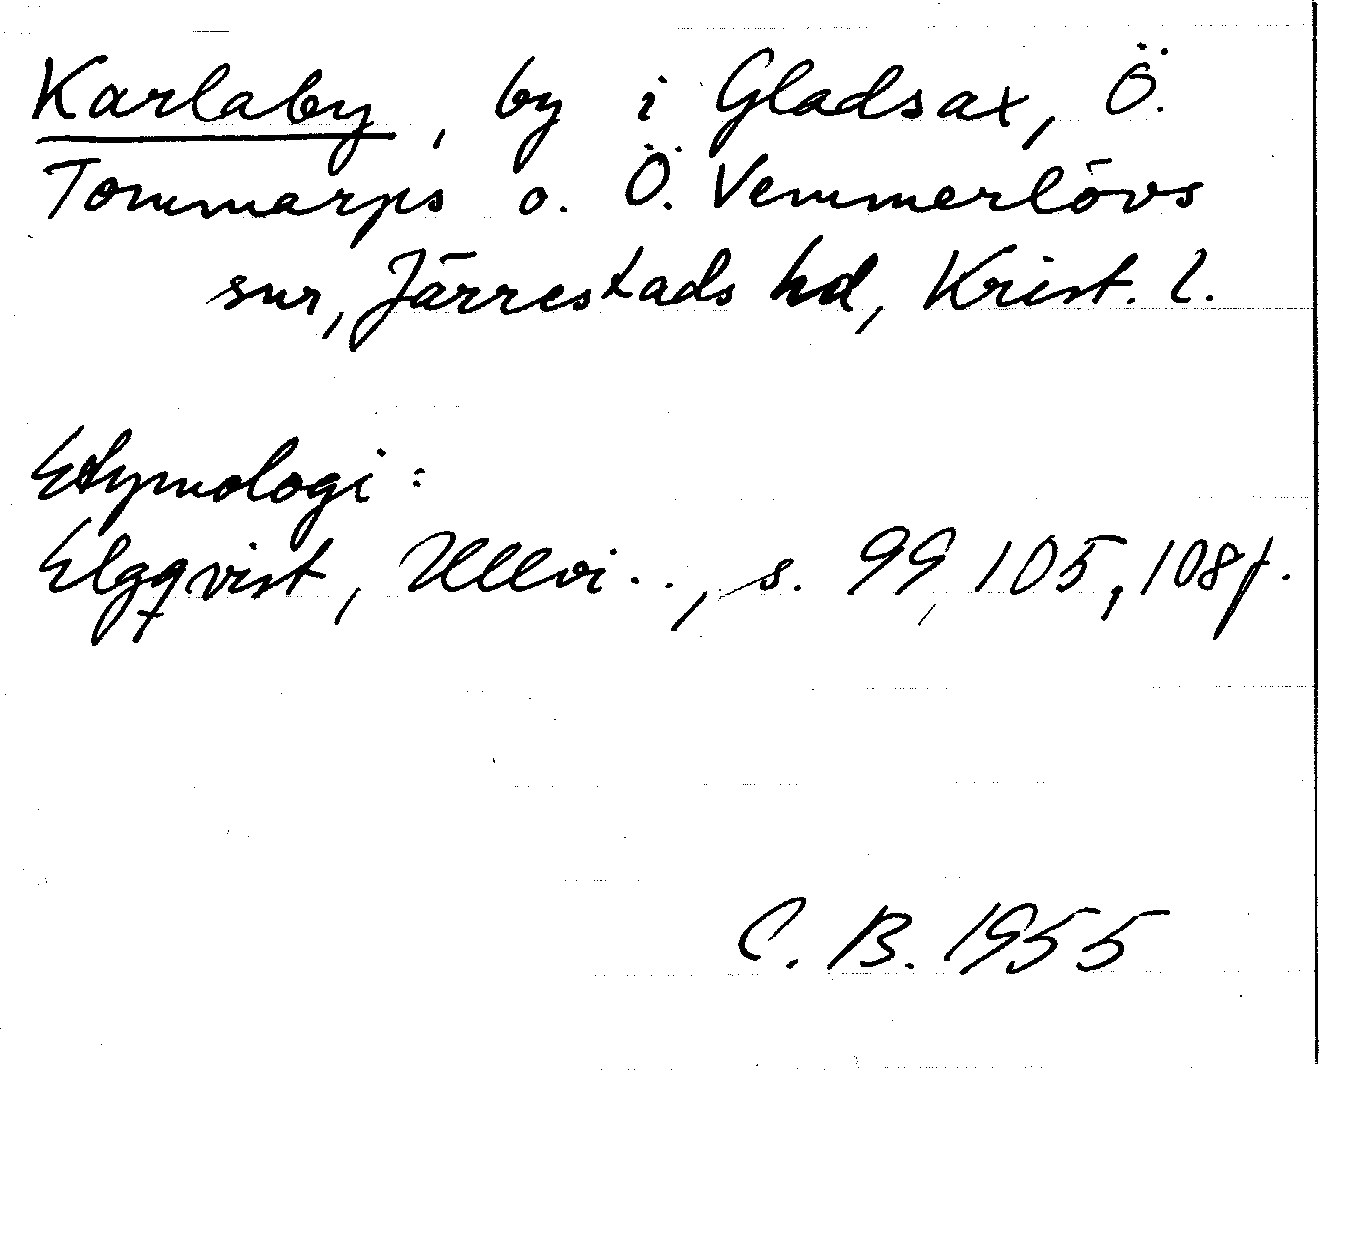 Karlaby, by i Gladsax, Ö.
Tommarps o. Ö. Vemmerlövs
snr, Järrestads hd, Krist. l.
Etymologi:
Elgqvist, Ullvi.., s. 99, 105, 108f.
C. B. 1955